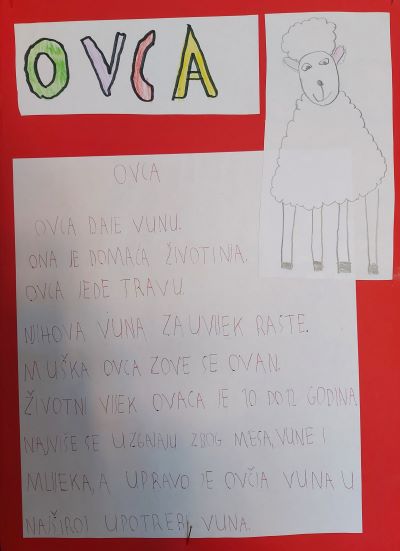 OVCA
OVCA
OVCA DAJE VUNU.
ONA JE DOMAĆA ŽIVOTINJA.
OVCA JEDE TRAVU.
NJIHOVA VUNA ZAUVIJEK RASTE.
MUŠKA OVCA ZOVE SE OVAN.
ŽIVOTNI VIJEK OVACA JE 10 DO 12 GODINA.
NAJVIŠE SE UZGAJAJU ZBOG MESA, VUNE I
MLIJEKA, A UPRAVO JE OVČJA VUNA U
NAJŠIROJ UPOTREBI VUNA.